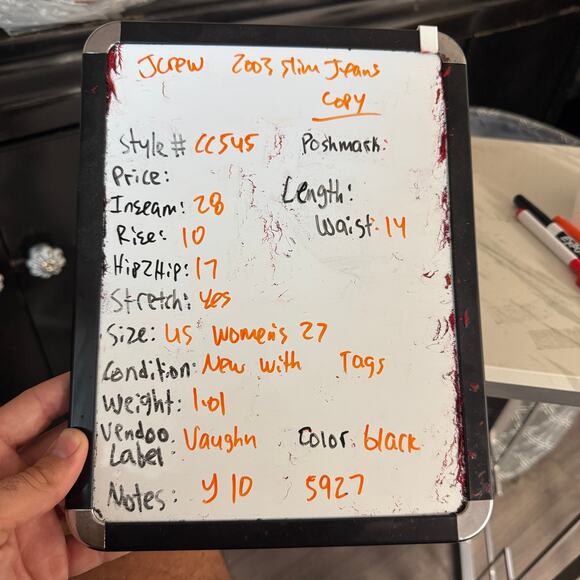 Jcrew 2003 Slim Jeans
Copy
Style # CC545 Poshmark:
Price:
Length:
Inseam: 28
Waist: 14
Rise: 10
Hip2Hip: 17
Stretch: Yes
Size: US Women's 27
Condition: New With Tags
Weight: 1.01
Vendoo Label: Vaughn Color: black
Notes: Y10 5927
EXPO